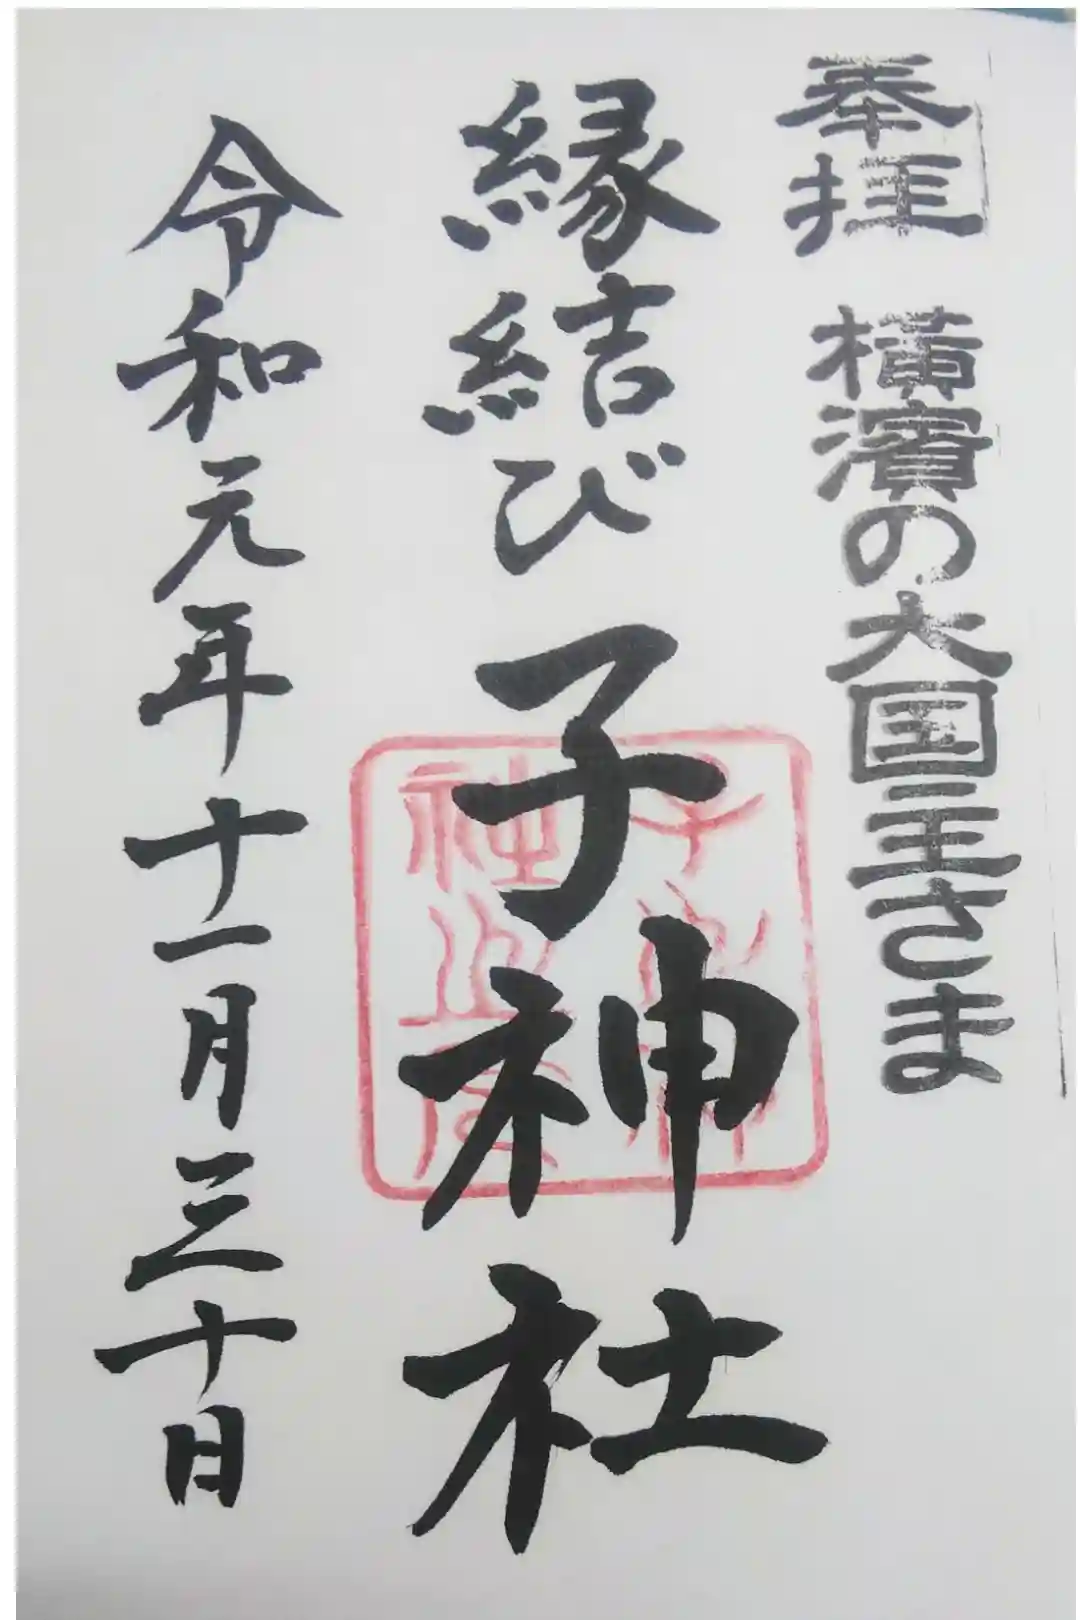 奉拝 横濱の大国主さま
縁結び 子神社
子之神
社之印
令和元年十一月三十日